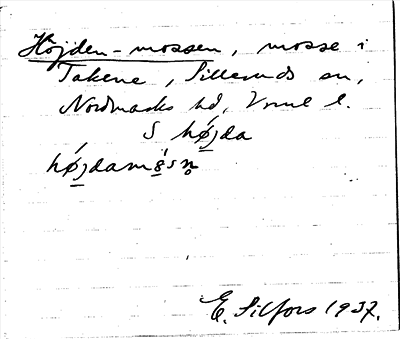 Höjden-mossen, mosse i
Takene, Silleruds sn,
Nordmarks hd, Vrml l.
S höjda
højdamåsn̥
E. Silfors 1937.